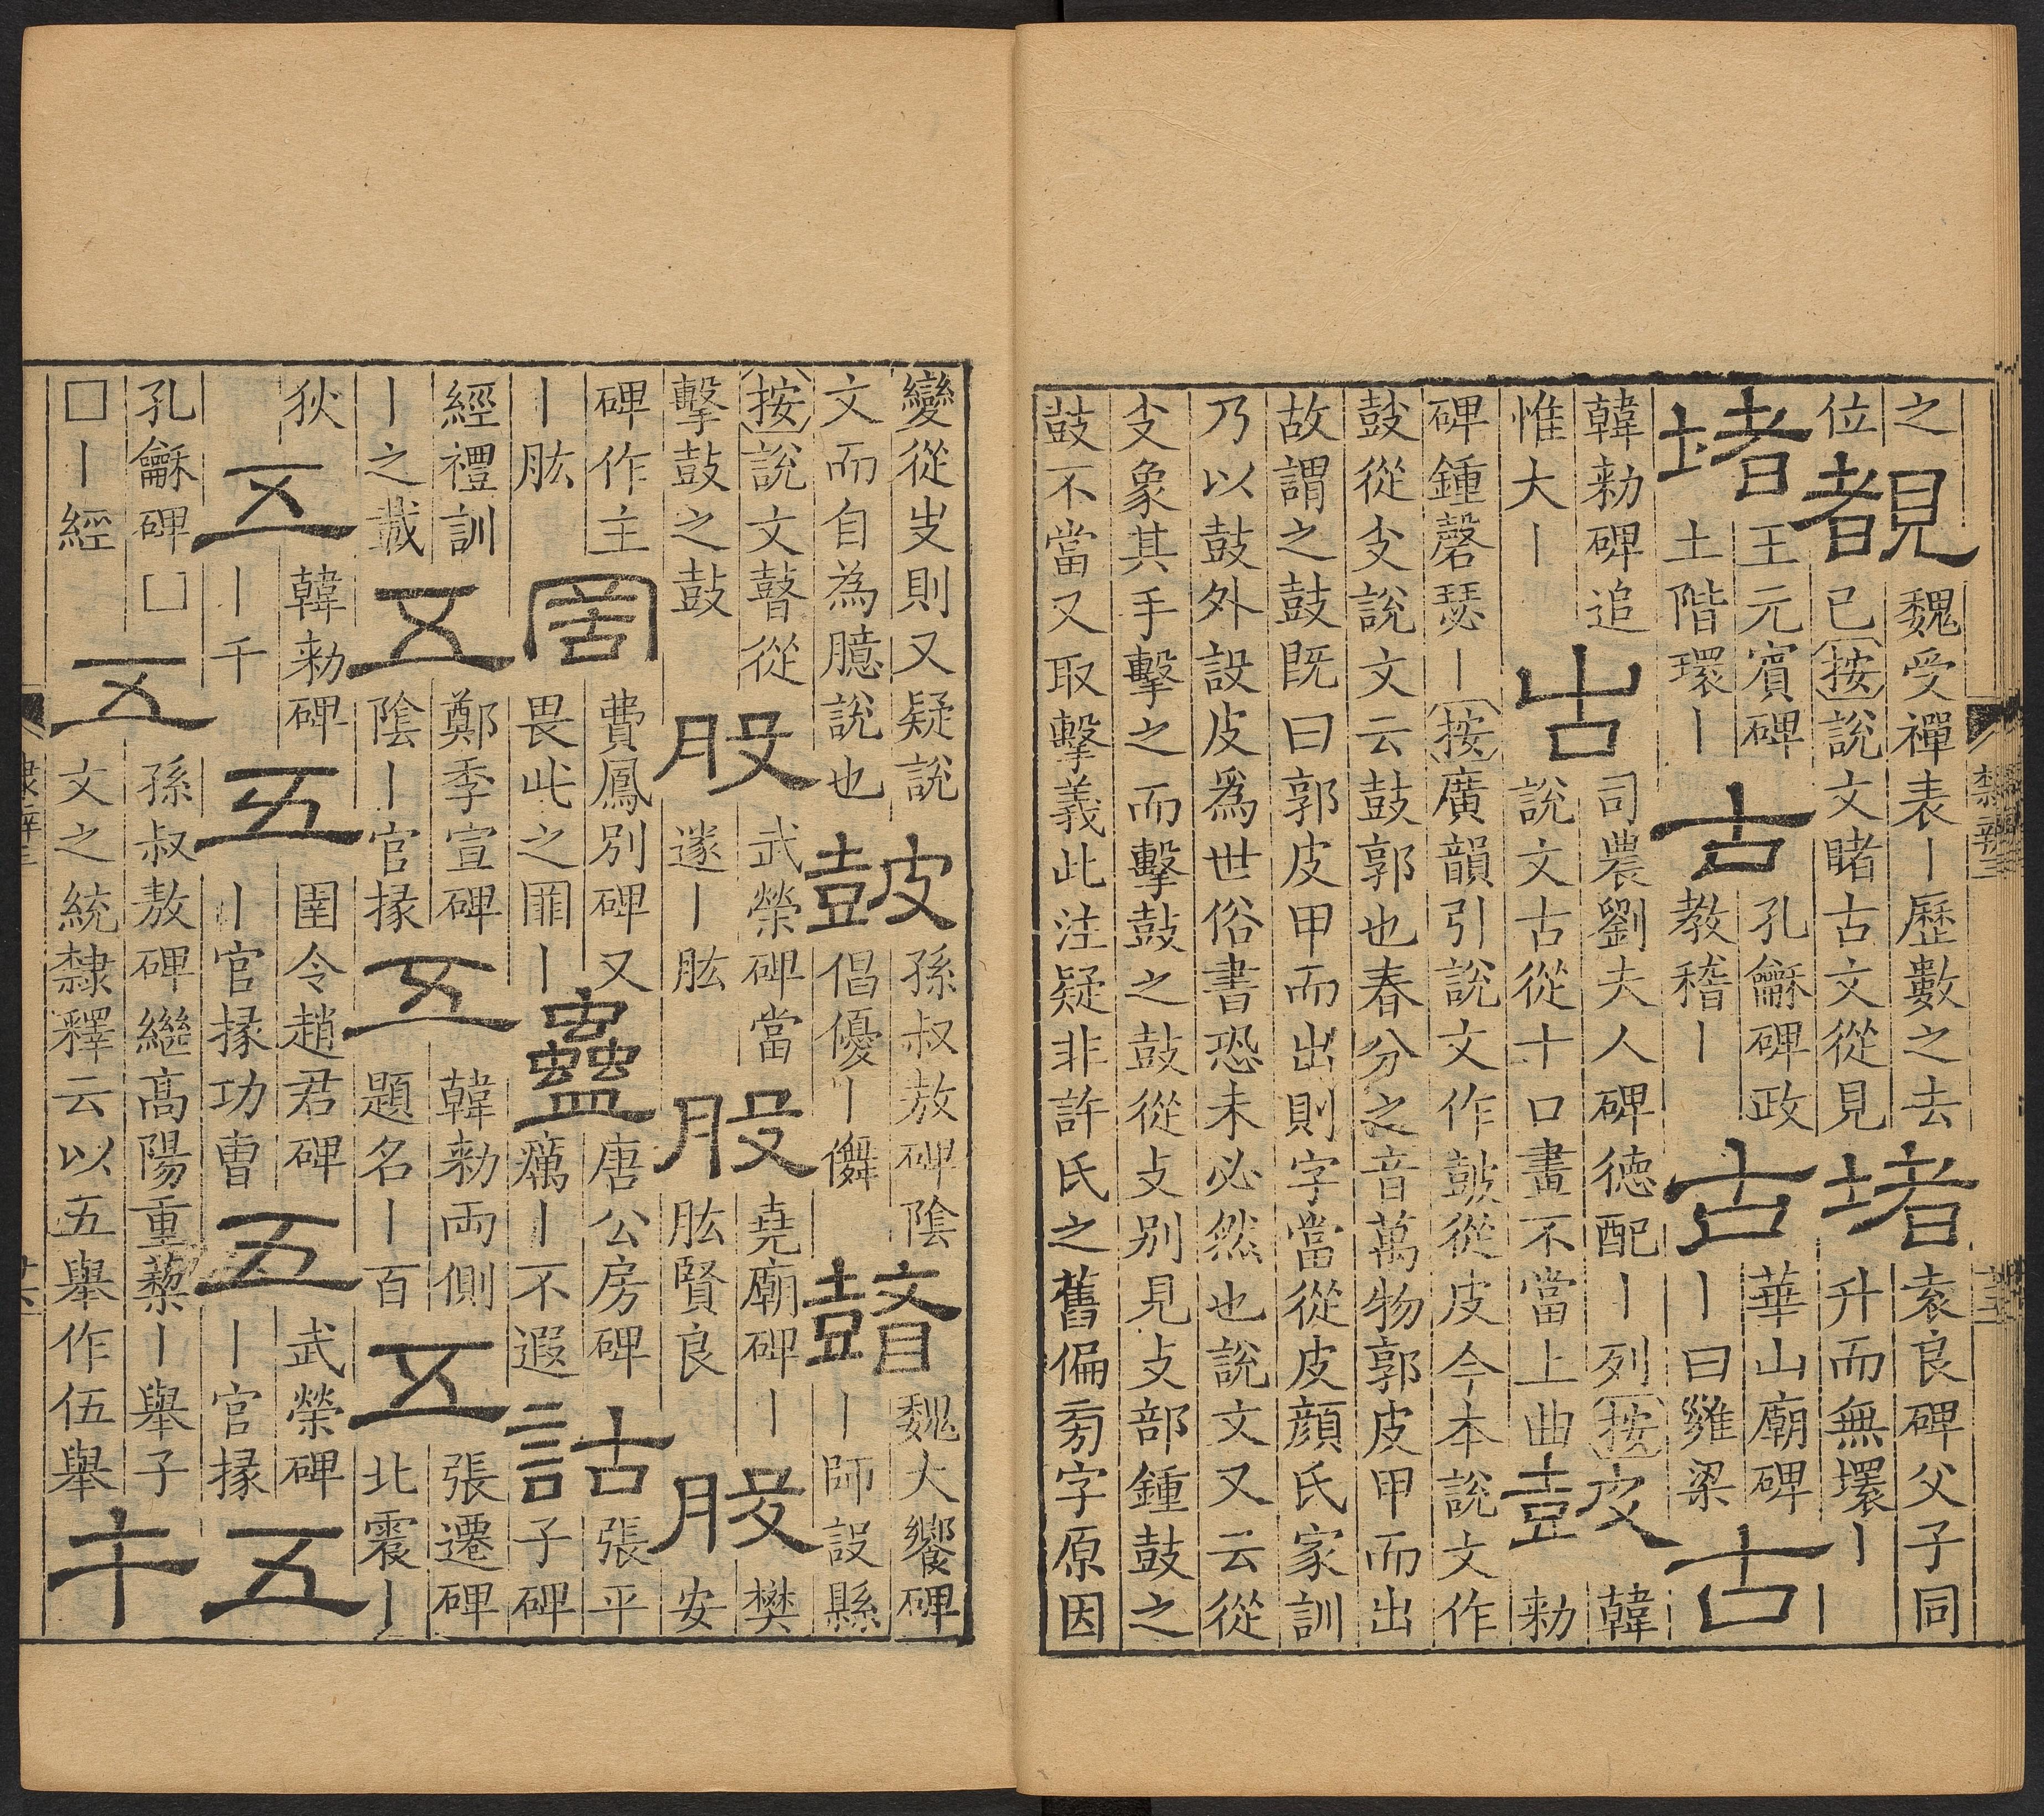 之
位
覩
魏受禪表丨歷數之去
已按說文睹古文從見
堵
袁良碑父子同
升而無壞丨
堵
王元賓碑
土階環丨
古
孔龢碑政
教稽丨
古
華山廟碑
丨曰雍梁
古
韓勑碑追
惟大丨
古
司農劉夫人碑德配丨列按
說文古從十口畫不當上曲
皷
韓
勑
碑鍾磬瑟丨按廣韻引說文作皷從皮今本說文作
鼓從支說文云鼓郭也春分之音萬物郭皮甲而出
故謂之鼓既曰郭皮甲而出則字當從皮顏氏家訓
乃以鼓外設皮爲世俗書恐未必然也說文又云從
支象其手擊之而擊鼓之鼓從攴別見攴部鍾鼓之
鼓不當又取擊義此注疑非許氏之舊偏旁字原因
變從𡴀則又疑說
文而自為臆說也
皷
孫叔敖碑陰
倡優丨儛
瞽
魏大饗碑
丨師設縣
按說文瞽從
擊鼓之鼓
股
武榮碑當
遂丨肱
股
堯廟碑丨
肱賢良
股
樊
安
碑作主
丨肱
罟
費鳳別碑又
畏此之罪丨
蠱
唐公房碑
癘丨不遐
詁
張平
子碑
經禮訓
丨之韱
五
鄭季宣碑
陰丨官掾
五
韓勑兩側
題名丨百
五
張遷碑
北震丨
狄
五
韓勑碑
丨千
五
圉令趙君碑
丨官掾功曹
五
武榮碑
丨官掾
五
孔龢碑□
□丨經
五
孫叔敖碑繼高陽重藜丨舉子
文之統隸釋云以五舉作伍舉
午